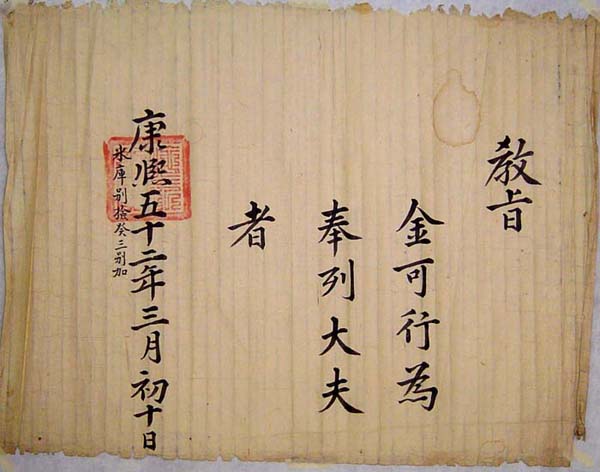 教旨
金可行為
奉列大夫
者
康熙五十二年三月初十日
氷庫別檢癸三別加